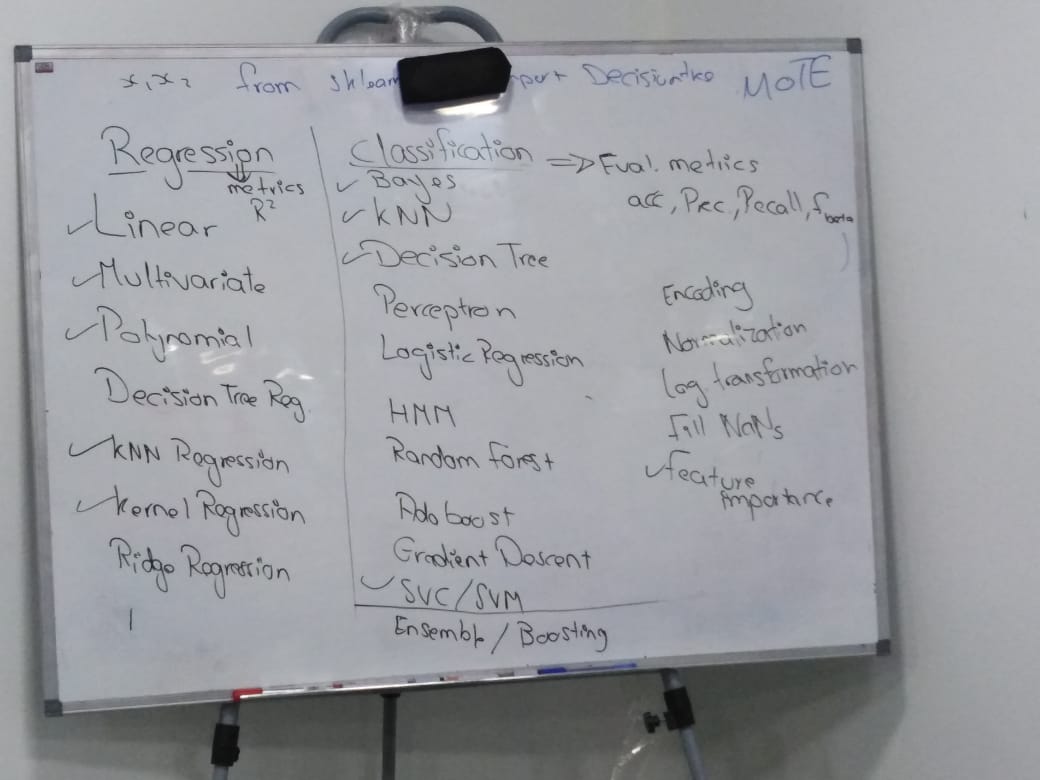 x1 x2 from sklear port Decisiontree MOTE
Regression
metrics
R²
Linear
Multivariate
Polynomial
Decision Tree Reg.
KNN Regression
Kernel Regression
Ridge Regression
Classification => Eval. metrics
acc, Prec, Recall, f beta
Bayes
KNN
Decision Tree
Perceptron
Logistic Regression
HMM
Random Forest
Adaboost
Gradient Descent
SVC/SVM
Ensemble / Boosting
Encoding
Normalization
Log transformation
Fill NaNs
Feature
importance